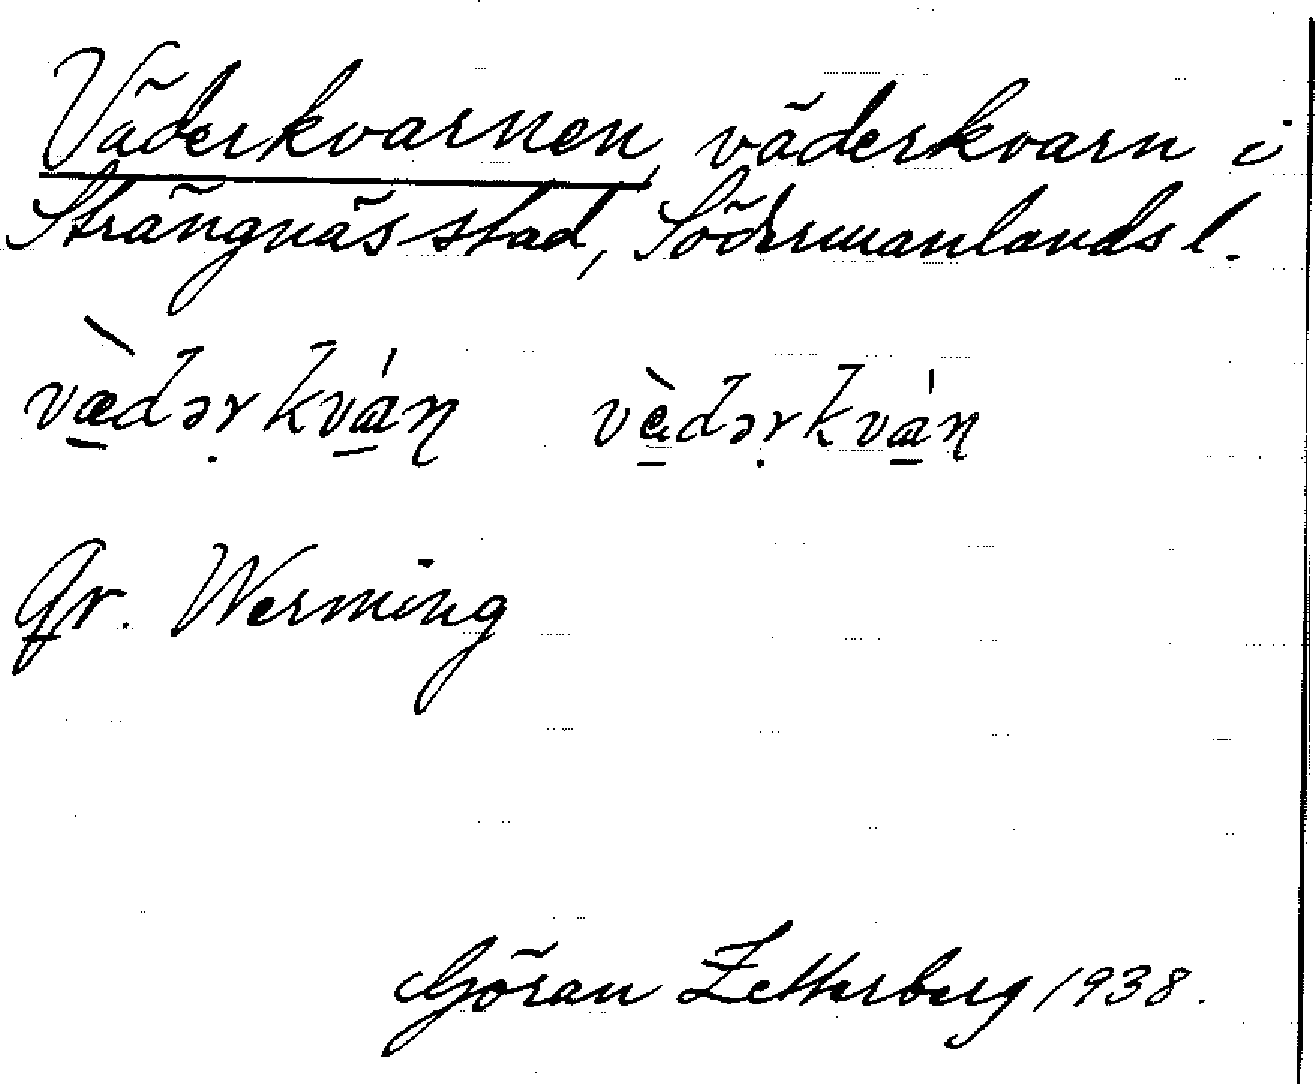 Väderkvarnen, väderkvarn i
Strängnäs stad, Södermanlands l.
væ̀dərkván vèdərkván
Gr. Werming
Göran Zetterberg 1938.